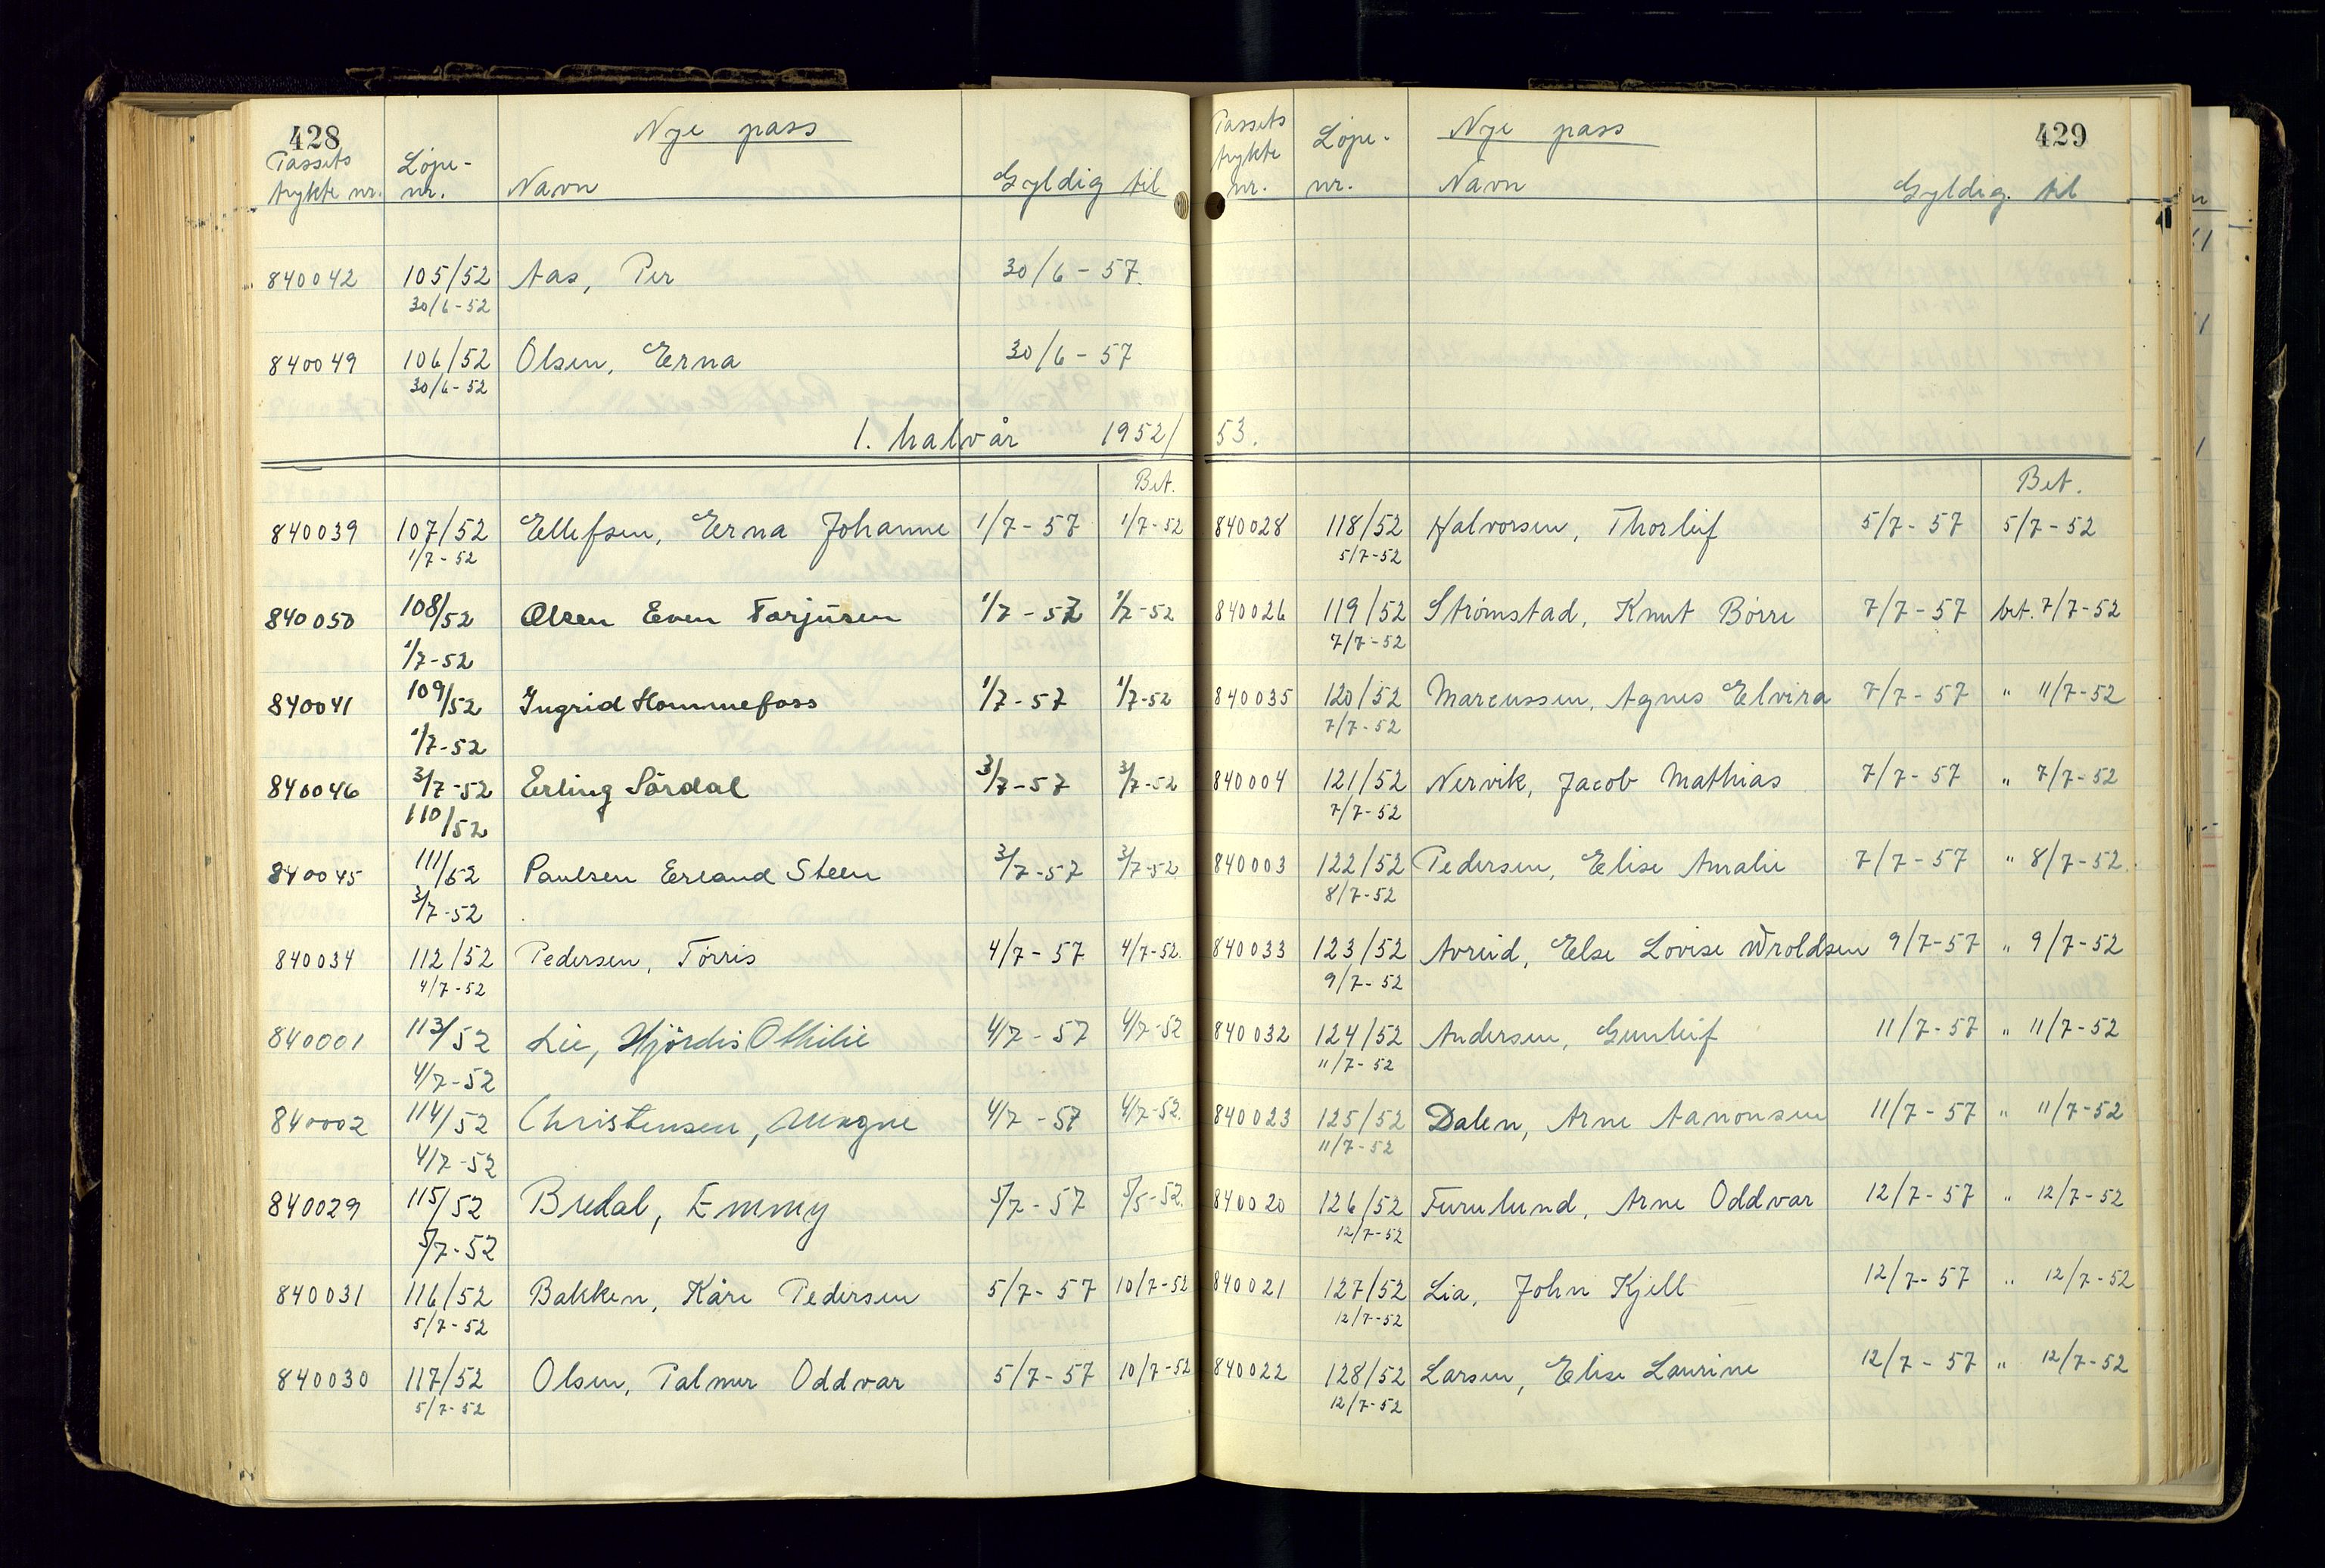 428
Nye pass
Passets Løpe-
trykte nr. nr. Navn Gyldig til
840042 105/52 Aas, Per 30/6 - 57.
30/6-52
840049 106/52 Olsen, Erna 30/6 - 57
30/6-52
1. halvår 1952/
Bet.
840039 107/52 Ellefsen, Erna Johanne 1/7 - 57 1/7-52
1/7-52
840050 108/52 Olsen Even Torjusen 1/7 - 57 1/7-52
1/7-52
840041 109/52 Ingrid Hommefoss 1/7-57 1/7-52
1/7-52
840046 3/7-52 Erling Sørdal 3/7-57 3/7-52
110/52
840045 111/52 Paulsen Erland Steen 3/7-57 3/7-52
3/7-52
840034 112/52 Pedersen, Tørris 4/7 - 57 4/7-52.
4/7-52
840001 113/52 Lie, Hjördis Othilie 4/7 - 57 4/7-52
4/7-52
840002 114/52 Christensen, Magne 4/7 - 57 4/7-52.
4/7-52
840029 115/52 Bredal, Emmy 5/7 - 57 5/5-52.
5/7-52
840031 116/52 Bakken, Kåre Pedersen 5/7 - 57 10/7-52
5/7-52
840030 117/52 Olsen, Palmer Oddvar 5/7 - 57 10/7-52
5/7-52
429
Passets Løpe- Nye pass
trykte
nr. nr. Navn Gyldig til
53.
Bet.
840028 118/52 Halvorsen, Thorleif 5/7 - 57 5/7-52
5/7-52
840026 119/52 Strømstad, Knut Børre 7/7 - 57 bet. 7/7-52
7/7-52
840035 120/52 Marcussen, Agnes Elvira 7/7 - 57 " 11/7-52
7/7-52
840004 121/52 Nervik, Jacob Mathias 7/7 - 57 " 7/7-52
7/7-52
840003 122/52 Pedersen, Elise Amalie 7/7 - 57 " 8/7-52.
8/7-52
840033 123/52 Avreid, Else Lovise Wroldsen 9/7-57 " 9/7-52
9/7-52
840032 124/52 Andersen, Gunleif 11/7-57 " 11/7-52
11/7-52
840023 125/52 Dalen, Arne Aanonsen 11/7 - 57 " 11/7-52
11/7-52
840020 126/52 Furulund, Arne Oddvar 12/7 - 57 " 12/7-52
12/7-52
840021 127/52 Lia, John Kjell 12/7- 57 " 12/7-52
12/7-52
840022 128/52 Larsen, Elise Laurine 12/7 - 57 " 12/7-52
12/7-52